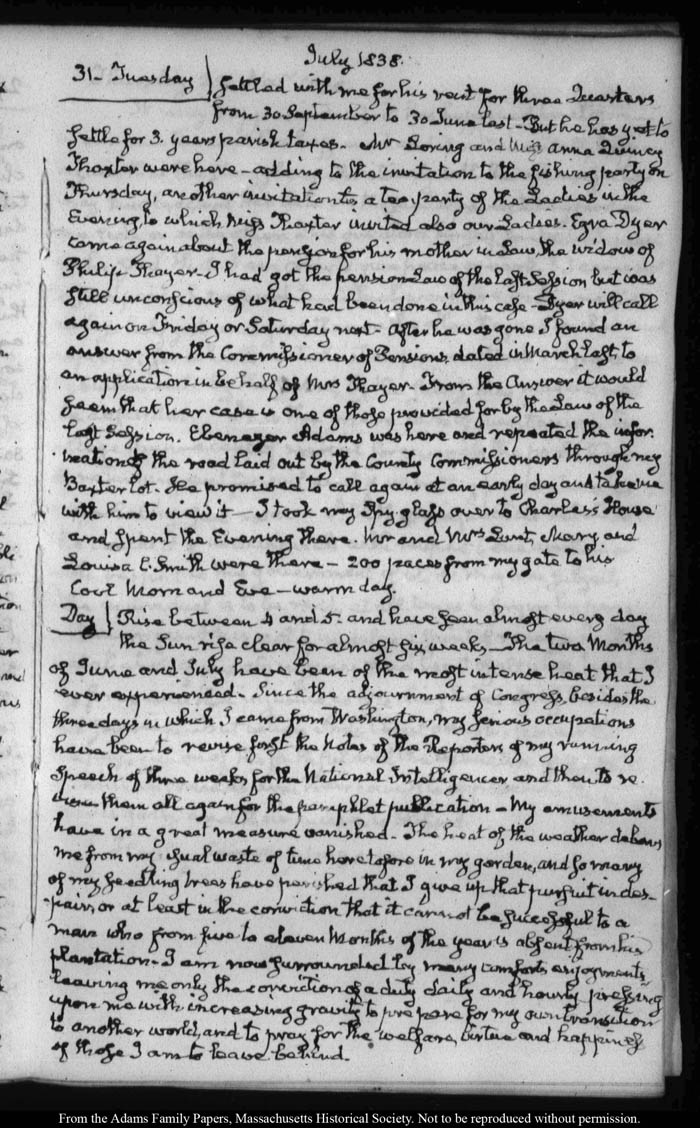 July 1838.
31- Tuesday} settled with me for his rent for three Quarters
from 30 September to 30 June last- But he has yet to
settle for 3. years parish taxes- Mr Loring and Miss Anna Quincy
Thaxter were here- adding to the invitation to the fishing party on
Thursday, another invitation to a tea party of the Ladies in the
Evening to which Miss Thaxter invited also our Ladies. Ezra Dyer
came again about the pension for his mother in Law, the widow of
Philip Thayer- I had got the pension Law of the last Session but was
still unconscious of what had been done in this case- Dyer will call
again on Friday or Saturday next- After he was gone I found an
answer from the Commissioner of Pensions, dated in March last, to
an application in behalf of Mrs Thayer- From the Answer it would
seem that her case is one of those provided for by the Law of the
last Session. Ebenezer Adams was here and repeated the infor-
mation of the road laid out by the County Commissioners through my
Baxter lot. He promised to call again at an early day and take me
with him to view it- I took my Spy glass over to Charles's House
and spent the Evening there. Mr and Mrs Lunt, Mary and
Louisa C. Smith were there- 200 paces from my gate to his
Cool Morn and Eve- warm day.
Day} Rise between 4 and 5. and have seen almost every day
the Sun rise clear for almost six weeks- The two Months
of June and July have been of the most intense heat that I
ever experienced- Since the adjournment of Congress, besides the
three days in which I came from Washington, my serious occupations
have been to revise first the Notes of the Reporters of my running
Speech of three weeks for the National Intelligencer and then to re-
view them all again for the pamphlet publication- My amusements
have in a great measure vanished- The heat of the weather debars
me from my usual waste of time heretofore in my garden, and so many
of my seedling trees have perished that I give up that pursuit in des-
-pair, or at least in the conviction that it cannot be successful to a
man who from five to eleven Months of the year is absent from his
plantation- I am now surrounded by many comforts, enjoyments,
leaving me only the conviction of a duty daily and hourly pressing
upon me with increasing gravity to prepare for my own transition
to another world, and to pray for the welfare, virtue and happiness
of those I am to leave behind.
From the Adams Family Papers, Massachusetts Historical Society. Not to be reproduced without permission.